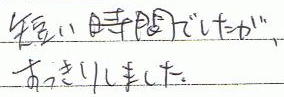 短い時間でしたが、
すっきりしました。